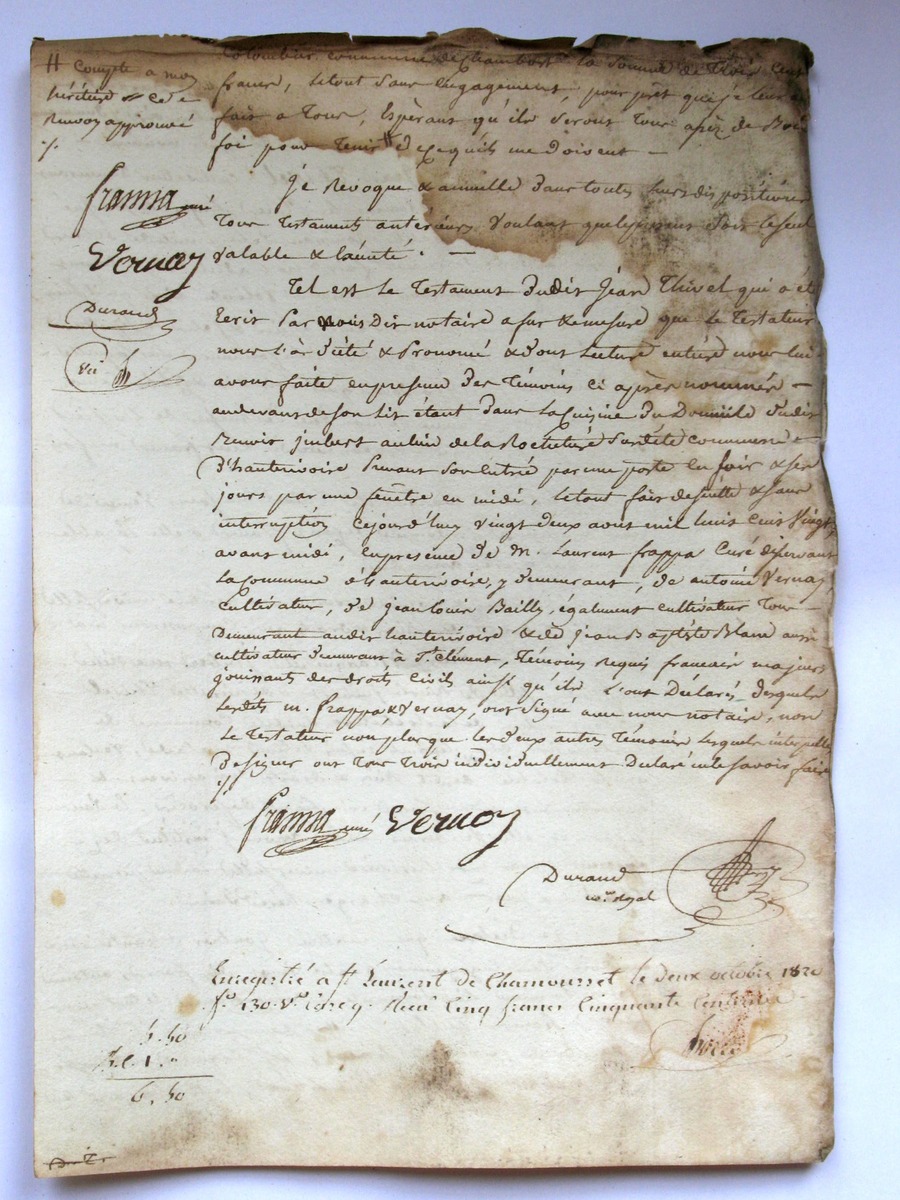 # compte a mon
héritière # ce
Renvoy approuvé
·/.
frappa curé
Vernay
Durand
colombier commune de chambost la somme de Trois cent
francs, le tout sans engagement, pour pret que je leur ai
fait a Tous, Espèrant qu'ils seront Tous assèz de Bone
foi pour Tenir # ce qu'ils me doivent —
Je Revoque & annulle dans toutes leurs dispositions
Tous Testaments anterieurs Voulant que le present soit le seul
valable & éxécuté. —
Tel est le Testament dudit Jean Thivel qui a été
Ecrit par nous dit notaire a fur & mesure que le Testateur
nous l'a dicté & Prononcé & dont Lecture entière nous lui
avons faite en presence des Témoins ci après nommés —
audevant de son lit étant dans la cuisine du Domicile dudit
Benoit jinbert au lieu de la Rochette Sur dite commune
d'hauterivoire prenant son entrée par une porte en soir & ses
jours par une fenêtre en midi, le tout fait de suitte & sans
interruption Cejourd'huy vingt deux aout mil huit cent Vingt
avant midi, en presence de M. Laurent frappa Curé desservant
la commune d'hauterivoire, y demeurant, de antoine Vernay
Cultivateur, de jean Louis Bailly, également cultivateur Tous —
Demeurant audit hauterivoire & de Jean Baptiste Blanc aussi
cultivateur demeurant à St. Clément, Témoins Requis francais majeurs
jouissants des droits Civils ainsi qu'ils l'ont Déclaré, desquels
lesdits m. frappa & Vernay, ont signé avec nous notaire, non
le Testateur non plus que les deux autres Témoins lesquels interpellés
de signer ont Tous Trois individuellement Déclaré ne le savoir faire
·/.
frappa curé Vernay
Durand
nre. royal
Enregistré a St Laurent de Chamousset le deux octobre 1820
fo. 130. Vo. Case 9. Recu Cinq francs Cinquante Centimes
5. 50
1. "
6, 50